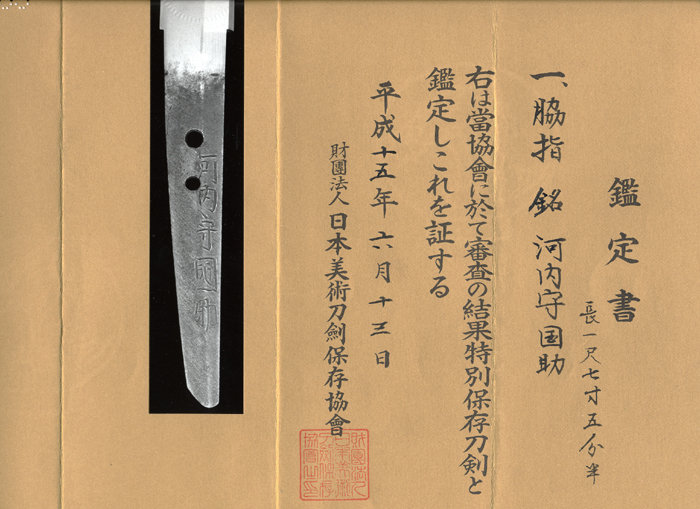 鑑定書
一、脇指 銘 河内守国助
長一尺七寸五分半
右は當協會に於て審査の結果特別保存刀剣と
鑑定しこれを証する
平成十五年六月十三日
財團法人 日本美術刀劍保存協會
河内守國助